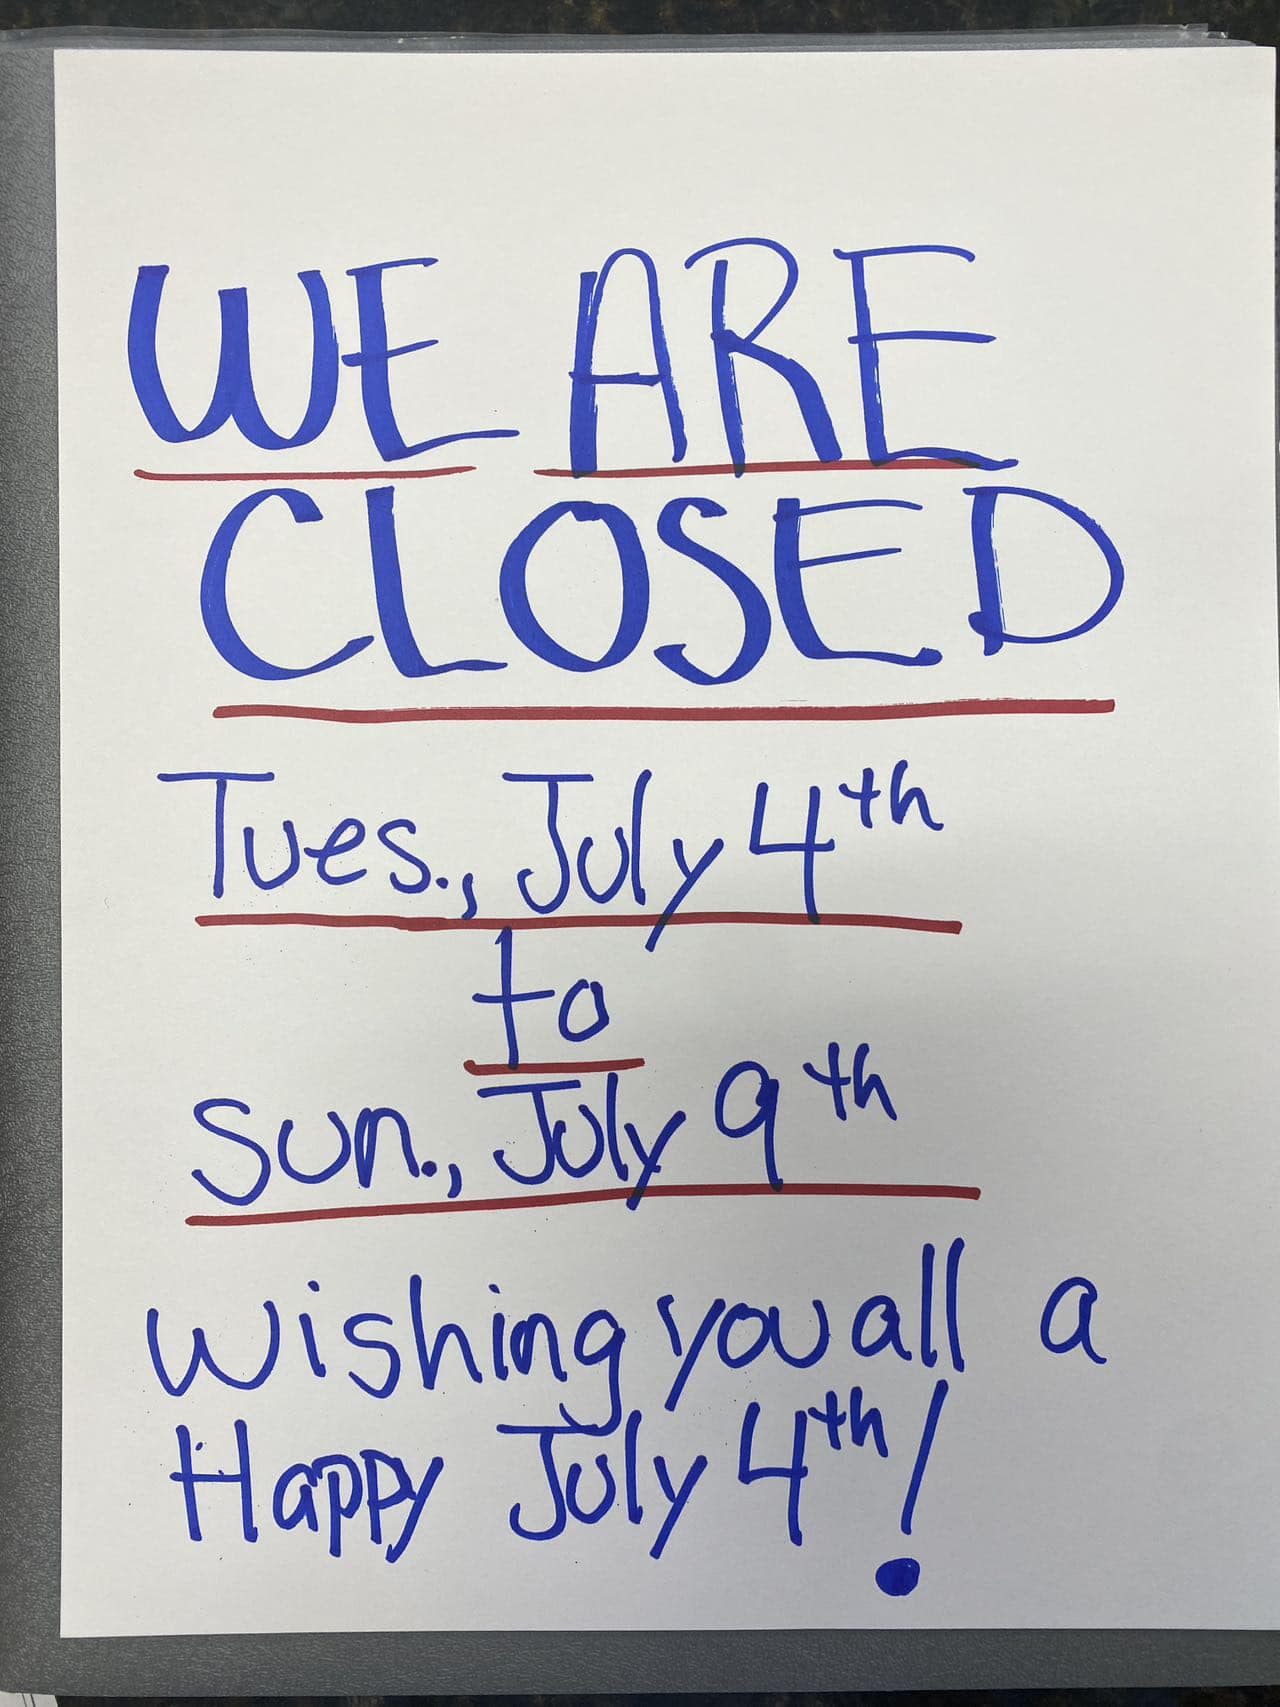 WE ARE
CLOSED
Tues., July 4th
to
Sun., July 9th
Wishing you all a
Happy July 4th!